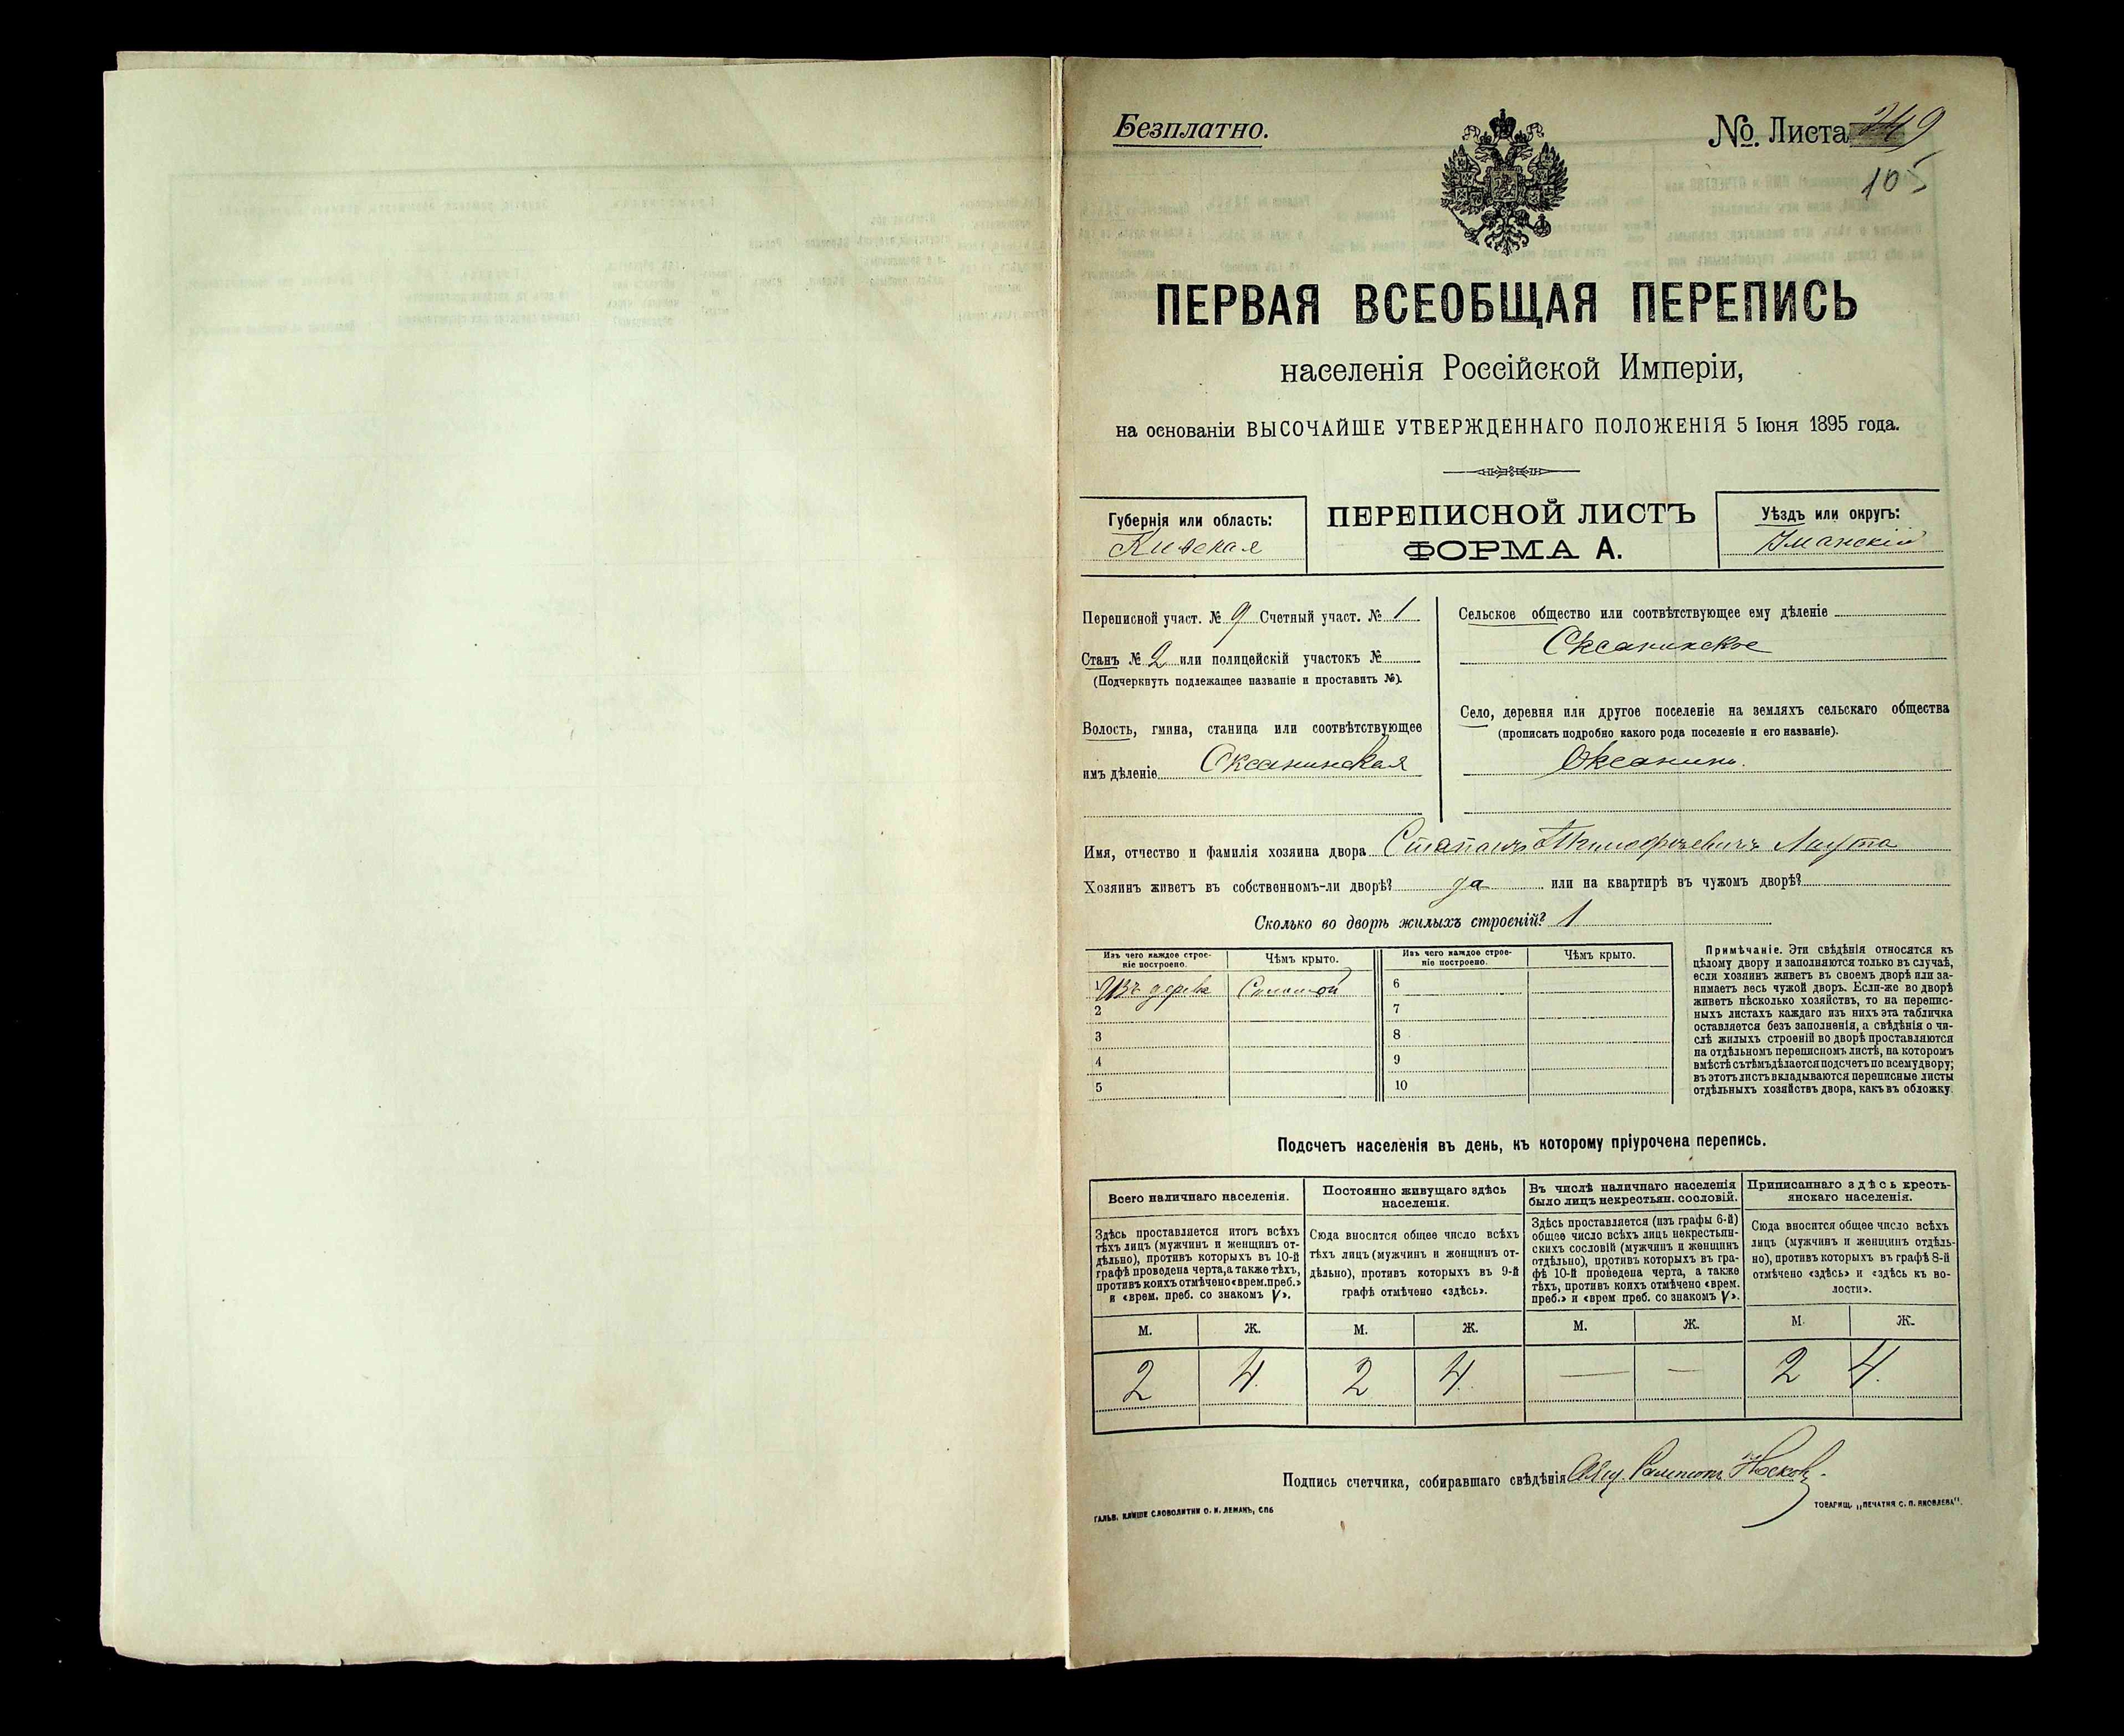 Безплатно.
№. Листа 249
105
ПЕРВАЯ ВСЕОБЩАЯ ПЕРЕПИСЬ
населенія Россійской Имперіи,
на основаніи ВЫСОЧАЙШЕ УТВЕРЖДЕННАГО ПОЛОЖЕНІЯ 5 Іюня 1895 года.
Губернія или область:
Кіевская
ПЕРЕПИСНОЙ ЛИСТЪ
ФОРМА А.
Уѣздъ или округъ:
Уманскій
Переписной участ. № 9 Счетный участ. № 1
Станъ № 2 или полицейскій участокъ №
(Подчеркнуть подлежащее названіе и проставить №).
Волость, гмина, станица или соотвѣтствующее
имъ дѣленіе Оксанинская
Сельское общество или соотвѣтствующее ему дѣленіе
Оксанинское
Село, деревня или другое поселеніе на земляхъ сельскаго общества
(прописать подробно какого рода поселеніе и его названіе).
Оксанинъ.
Имя, отчество и фамилія хозяина двора Степанъ Тимофѣевичъ
Хозяинъ живетъ въ собственномъ-ли дворѣ? да или на квартирѣ въ чужомъ дворѣ?
Сколько во дворѣ жилыхъ строеній? 1
Изъ чего каждое строе-
ніе построено.
Чѣмъ крыто.
Изъ чего каждое строе-
ніе построено.
Чѣмъ крыто.
1 Изъ дерева Соломой 6
2 7
3 8
4 9
5 10
Примѣчаніе. Эти свѣдѣнія относятся къ
цѣлому двору и заполняются только въ случаѣ,
если хозяинъ живетъ въ своемъ дворѣ или за-
нимаетъ весь чужой дворъ. Если-же во дворѣ
живетъ нѣсколько хозяйствъ, то на перепис-
ныхъ листахъ каждаго изъ нихъ эта табличка
оставляется безъ заполненія, а свѣдѣнія о чи-
слѣ жилыхъ строеній во дворѣ проставляются
на отдѣльномъ переписномъ листѣ, на которомъ
вмѣстѣ съ тѣмъ дѣлается подсчетъ по всему двору;
въ этотъ листъ вкладываются переписные листы
отдѣльныхъ хозяйствъ двора, какъ въ обложку.
Подсчетъ населенія въ день, къ которому пріурочена перепись.
Всего наличнаго населенія.
Здѣсь проставляется итогъ всѣхъ
тѣхъ лицъ (мужчинъ и женщинъ от-
дѣльно), противъ которыхъ въ 10-й
графѣ проведена черта, а также тѣхъ,
противъ коихъ отмѣчено «врем. преб.»
и «врем. преб. со знакомъ V».
Постоянно живущаго здѣсь
населенія.
Сюда вносится общее число всѣхъ
тѣхъ лицъ (мужчинъ и женщинъ от-
дѣльно), противъ которыхъ въ 9-й
графѣ отмѣчено «здѣсь».
Въ числѣ наличнаго населенія
было лицъ некрестьян. сословій.
Здѣсь проставляется (изъ графы 6-й)
общее число всѣхъ лицъ некрестьян-
скихъ сословій (мужчинъ и женщинъ
отдѣльно), противъ которыхъ въ гра-
фѣ 10-й проведена черта, а также
тѣхъ, противъ коихъ отмѣчено «врем.
преб.» и «врем преб. со знакомъ V».
Приписаннаго здѣсь кресть-
янскаго населенія.
Сюда вносится общее число всѣхъ
лицъ (мужчинъ и женщинъ отдѣль-
но), противъ которыхъ въ графѣ 8-й
отмѣчено «здѣсь» и «здѣсь къ во-
лости».
М. Ж. М. Ж. М. Ж. М. Ж.
2 4. 2 4. — — 2 4.
Подпись счетчика, собиравшаго свѣдѣнія
ГАЛЬВ. КЛИШЕ СЛОВОЛИТНИ О. И. ЛЕМАНЪ, СПБ
ТОВАРИЩ. „ПЕЧАТНЯ С. П. ЯКОВЛЕВА".